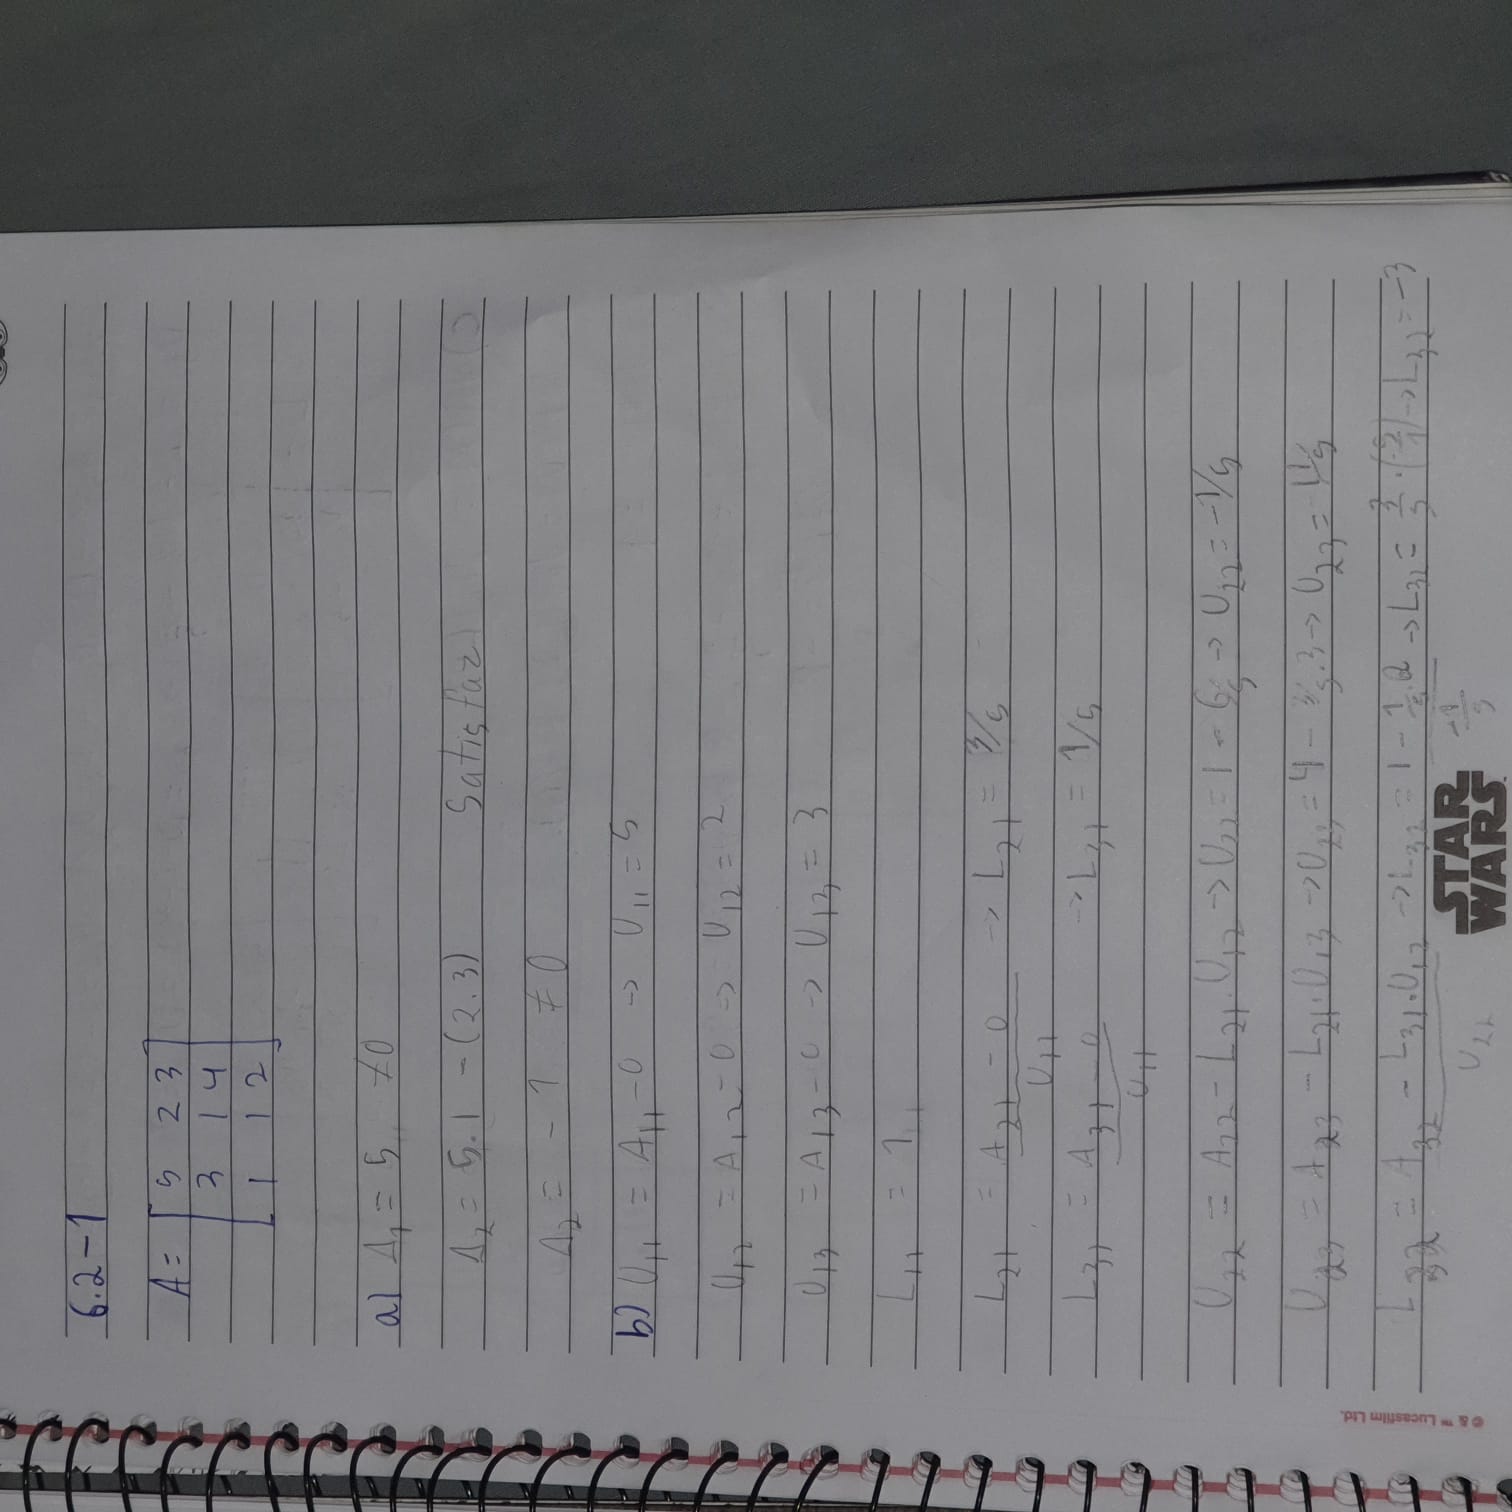 6.2-1
A = [ 5 2 3
3 1 4
1 1 2 ]
a) Δ1 = 5 ≠ 0
Δ2 = 5.1 - (2.3) Satisfaz
Δ2 = -1 ≠ 0
b) U11 = A11 - 0 → U11 = 5
U12 = A12 - 0 → U12 = 2
U13 = A13 - 0 → U13 = 3
L11 = 1
L21 = A21 - 0 → L21 = 3/5
U11
L31 = A31 - 0 → L31 = 1/5
U11
U22 = A22 - L21.U12 → U22 = 1 - 6/5 → U22 = -1/5
U23 = A23 - L21.U13 → U23 = 4 - 3/5.3 → U23 = 11/5
L32 = A32 - L31.U12 → L32 = 1 - 1/5.2 → L32 = 3/5.(-5/1) → L32 = -3
U22 -1/5
STAR WARS
© & ™ Lucasfilm Ltd.